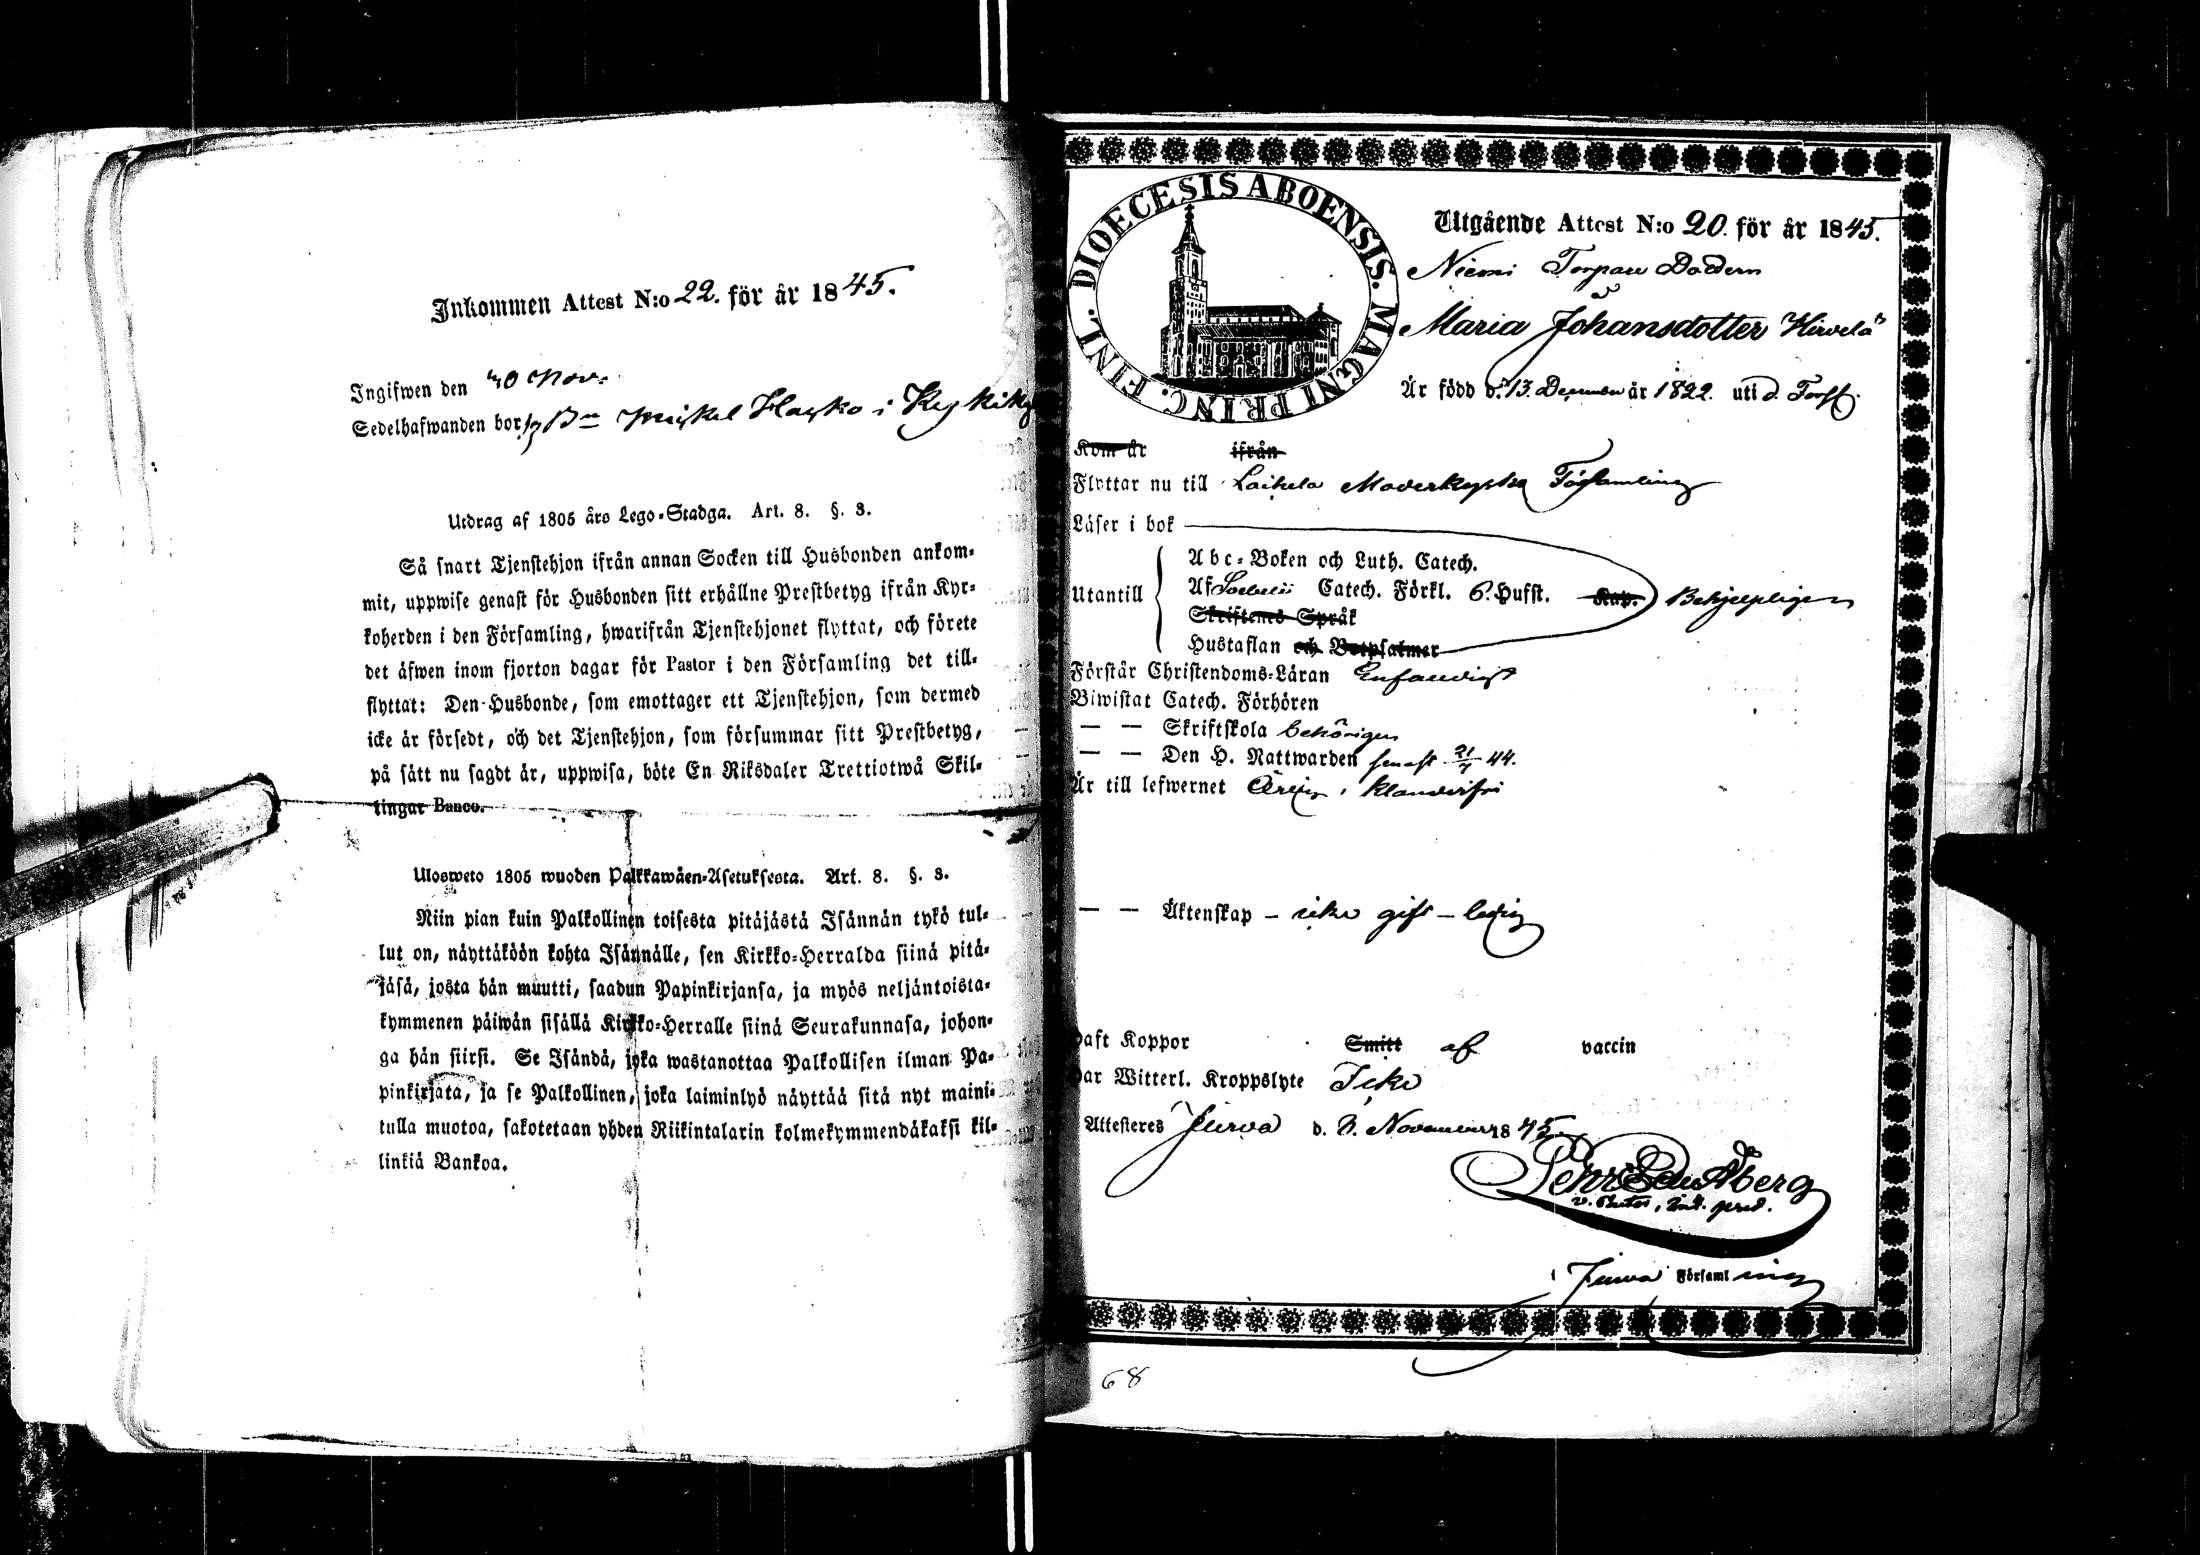 Inkommen Attest N:o 22. för år 1845.
Ingifwen den 30 Nov.
Sedelhafwanden bor
Utdrag af 1805 års Lego-Stadga. Art. 8. §. 3.
Så snart Tjenstehjon ifrån annan Socken till Husbonden ankom-
mit, uppwise genast för Husbonden sitt erhållne Prestbetyg ifrån Kyr-
koherden i den Församling, hwarifrån Tjenstehjonet flyttat, och förete
det äfwen inom fjorton dagar för Pastor i den Församling det till-
flyttat: Den Husbonde, som emottager ett Tjenstehjon, som dermed
icke är försedt, och det Tjenstehjon, som försummar sitt Prestbetyg,
på sätt nu sagdt är, uppwisa, böte En Riksdaler Trettiotwå Skil-
lingar Banco.
Ulosweto 1805 wuoden Palkkawäen-Asetuksesta. Art. 8. §. 3.
Niin pian kuin Palkollinen toisesta pitäjästä Isännän tykö tul-
lut on, näyttäköön kohta Isännälle, sen Kirkko-Herralda siinä pitä-
jäsä, josta hän muutti, saadun Papinkirjansa, ja myös neljäntoista-
kymmenen päiwän sisällä Kirkko-Herralle siinä Seurakunnasa, johon-
ga hän siirsi. Se Isändä, joka wastanottaa Palkollisen ilman Pa-
pinkirjata, ja se Palkollinen, joka laiminlyö näyttää sitä nyt maini-
tulla muotoa, sakotetaan yhden Riikintalarin kolmekymmendäkaksi kil-
linkiä Bankoa.
DIOECESIS ABOENSIS. MAGNI PRINC. FINL.
Utgående Attest N:o 20. för år 1845.
Niemi Torpare Dottern
Maria Johansdotter Hirvelä
Är född d. 13 December år 1822. uti d. Förs.
Kom år ifrån
Flyttar nu till Laihela Moderkyrko Församling
Läser i bok
Abc-Boken och Luth. Catech.
Utantill Af Sebelii Catech. Förkl. 6. Hufst. Kap. Behjelpligen
Skriftenes Språk
Hustaflan och Botpsalmer
Förstår Christendoms-Läran Enfaldigt
Biwistat Catech. Förhören
— — Skriftskola behörigen
— — Den H. Nattwarden senast 21/7 44.
Är till lefwernet Ärlig, klanderfri
— — Äktenskap — icke gift — ledig
Haft Koppor Smitt af vaccin
Har Witterl. Kroppslyte Icke
Attesteres Jurva d. November 1845.
Pehr Edv. Åberg
v. Pastor,
i Jurva Församling
68